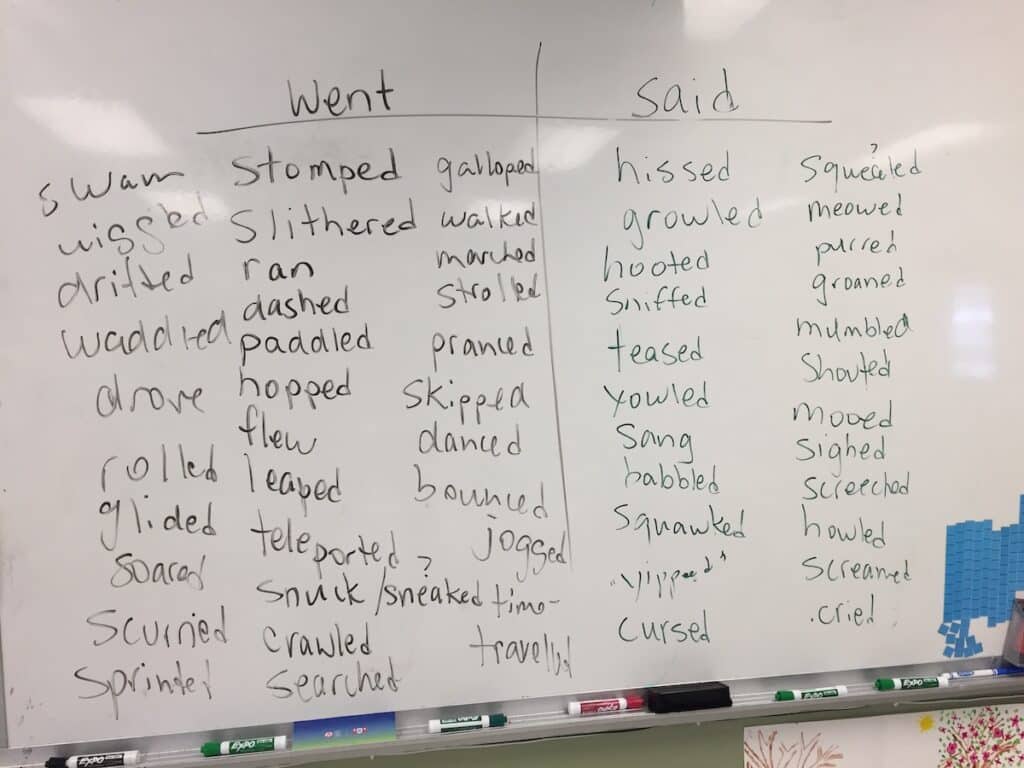 went
said
swam
wiggled
drifted
waddled
drove
rolled
glided
soared
scurried
sprinted
stomped
slithered
ran
dashed
paddled
hopped
flew
leaped
teleported
snuck/sneaked?
crawled
searched
galloped
walked
marched
strolled
pranced
skipped
danced
bounced
jogged
time-
travelled
hissed
growled
hooted
sniffed
teased
yowled
sang
babbled
squawked
"yipped"
cursed
?
squealed
meowed
purred
groaned
mumbled
shouted
mooed
sighed
screeched
howled
screamed
cried
EXPO